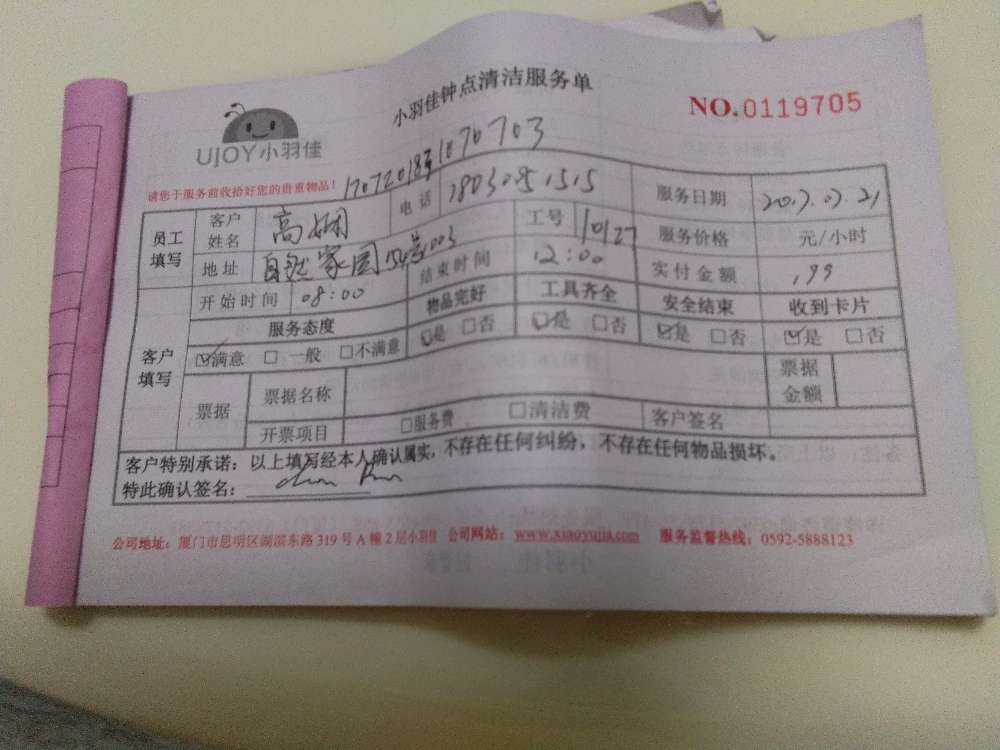 小羽佳钟点清洁服务单
NO.0119705
UJOY小羽佳
请您于服务前收拾好您的贵重物品！
员工填写 客户姓名 高娴 电话 服务日期 2017.07.21
地址 自然家园 工号 10127 服务价格 元/小时
开始时间 08:00 结束时间 12:00 实付金额 199
客户填写 服务态度 物品完好 工具齐全 安全结束 收到卡片
☑满意 □一般 □不满意 ☑是 □否 ☑是 □否 ☑是 □否 ☑是 □否
票据 票据名称 票据金额
开票项目 □服务费 □清洁费 客户签名
客户特别承诺：以上填写经本人确认属实，不存在任何纠纷，不存在任何物品损坏。
特此确认签名：
公司地址：厦门市思明区湖滨东路319号A幢2层小羽佳 公司网站：www.xiaoyujia.com 服务监督热线：0592-5888123